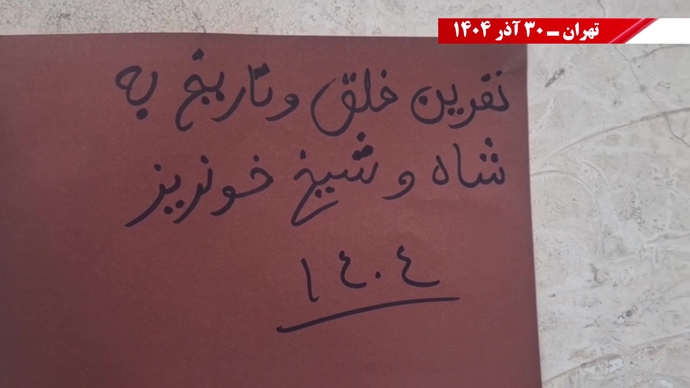 تهران ـ ۳۰ آذر ۱۴۰۴
نفرین خلق و تاریخ به
شاه و شیخ خونریز
۱۴۰۴